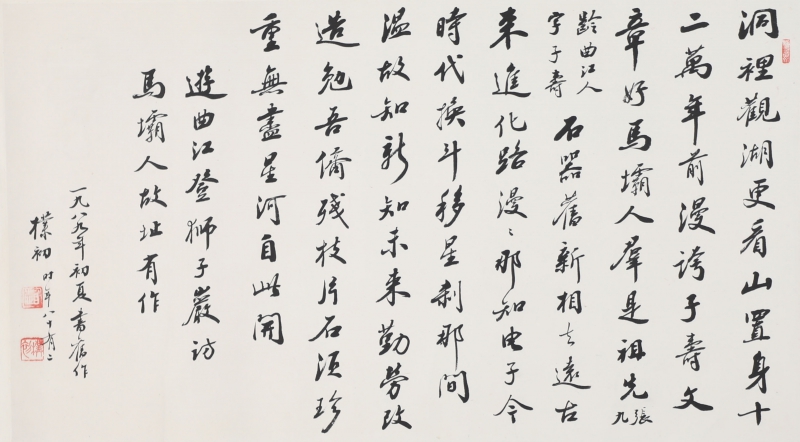 洞裡觀湖更看山置身十
二萬年前漫誇子壽文
章好馬壩人羣是祖先張九
齡曲江人字子壽石器舊新相去遠古
來進化路漫〻那知电子今
時代換斗移星刹那間
溫故知新知未来勤勞改
造勉吾儕殘枝片石須珍
重無盡星河自此開
遊曲江登獅子巖訪
馬壩人故址有作
一九八九年初夏書舊作
樸初时年八十有二